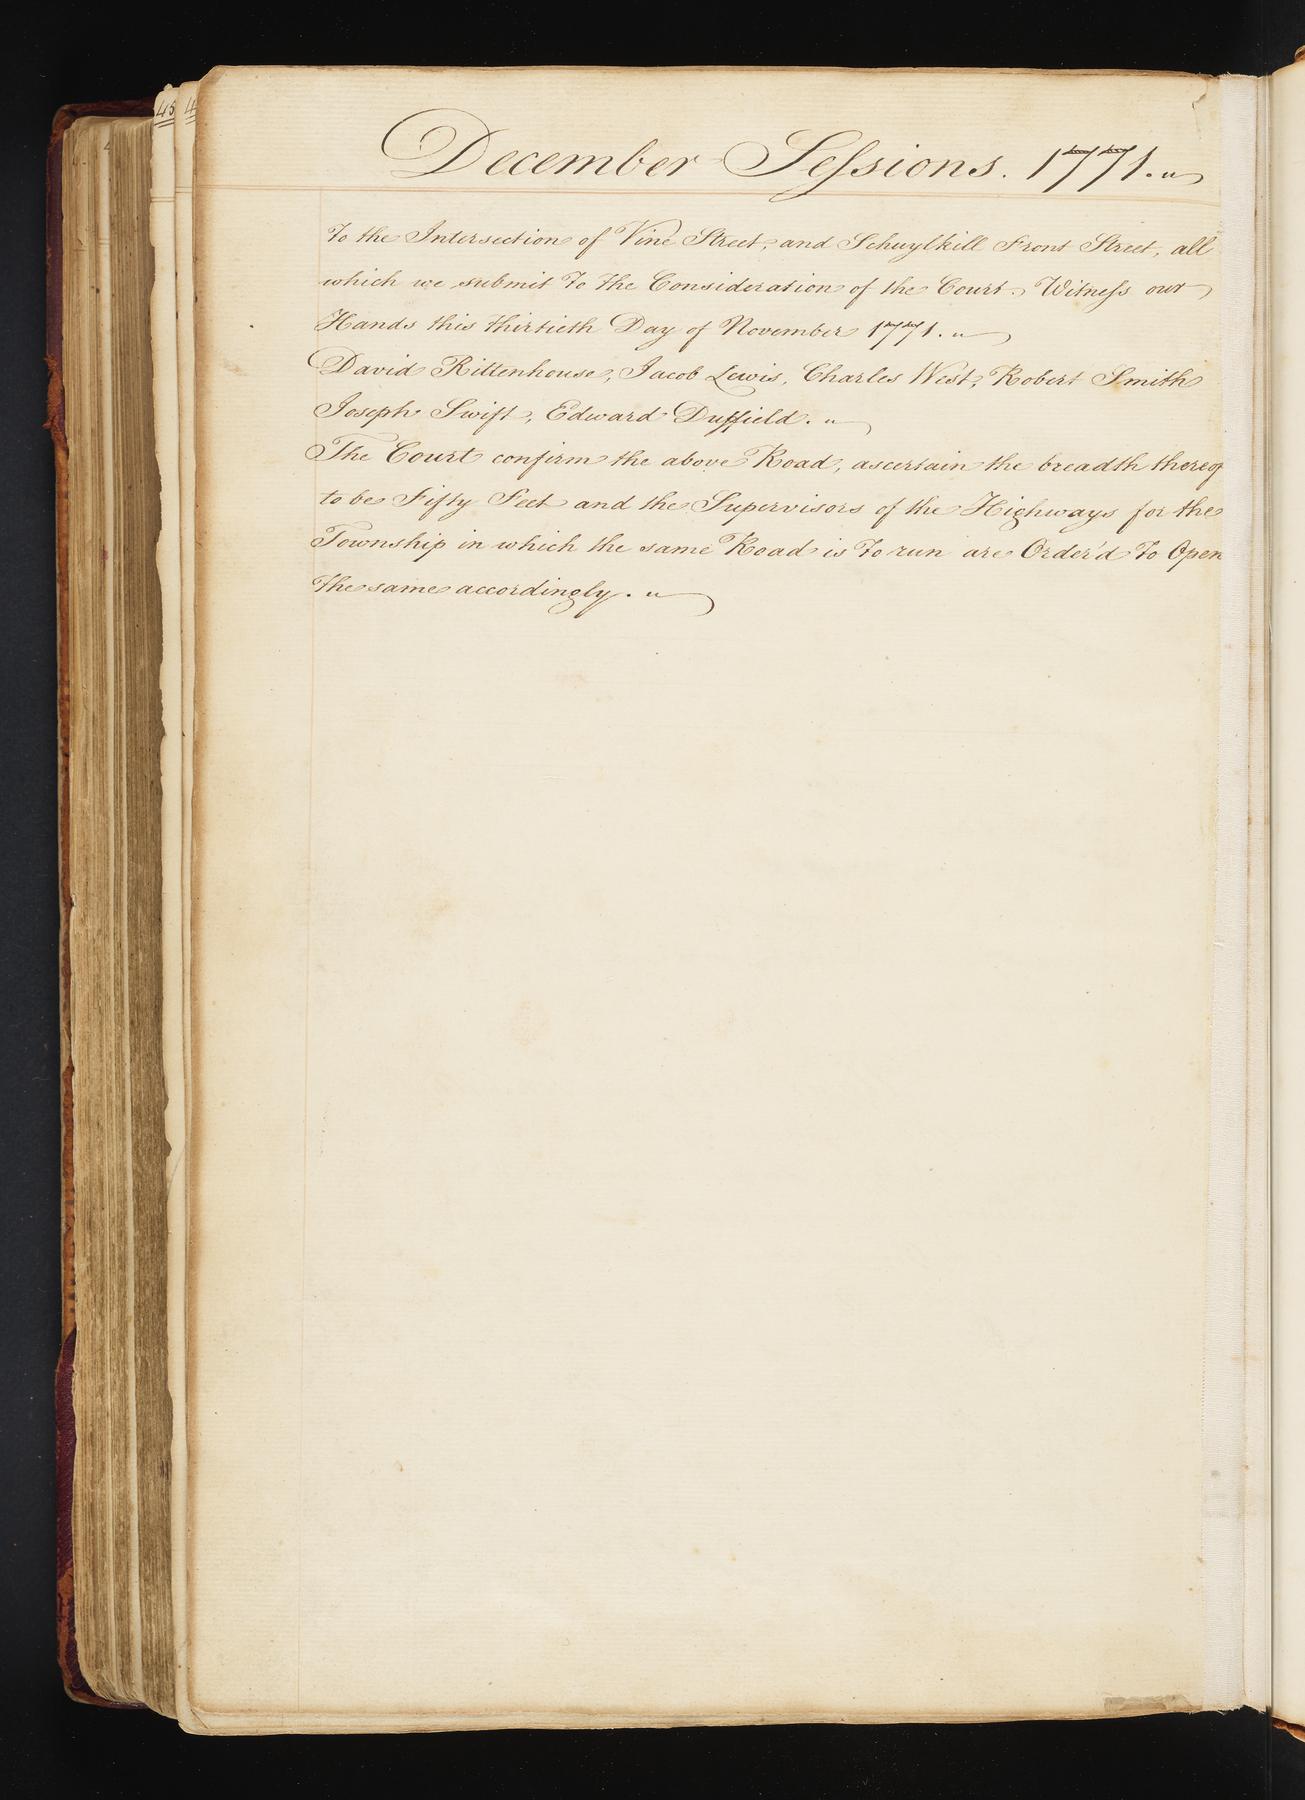 December Sessions. 1771.
To the Intersection of Vine Street, and Schuylkill Front Street, all
which we submit To the Consideration of the Court. Witness our
Hands this thirtieth Day of November 1771.
David Rittenhouse, Jacob Lewis, Charles West, Robert Smith
Joseph Swift, Edward Duffield.
The Court confirm the above Road, ascertain the breadth thereof
to be Fifty Feet and the Supervisors of the Highways for the
Township in which the same Road is To run are Order'd To Open
the same accordingly.